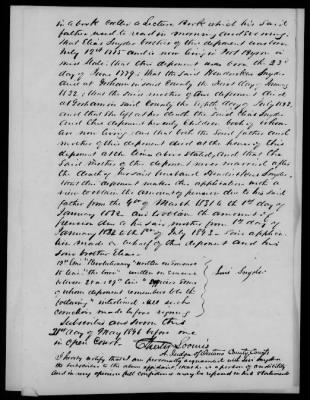 in a book called a Lecture Book which his said
father used to read in morning and evening.
that Elias Snyder brother of this deponent was born
July 12th 1775 and is now living in Port Byron in
this State. that this deponent was born the 23d
day of June 1779. that the said Hendrickus Snyder
died at Gorham in said County the first day of January
1832. that the said mother of this deponent died
at Gorham in said County the eighth day of July 1842.
and that she left at her death the said Elias Snyder
and this deponent her only children both of whom
are now living. and that both the said father and
mother of this deponent died at the house of this
deponent at the times above stated, and that the
said mother of this deponent never married after
the death of her said husband Hendrickus Snyder.
that this deponent makes this application with a
view to obtain the amount of pension due to his said
father from the 4th of March 1831 to the 1st day of
January 1832 and to obtain the amount of
pension due to his said mother from 1st day of
January 1832 to the 8th of July 1842. This application
is made on behalf of this deponent and his
said brother Elias.
"Revolutionary" written on erasure
line "the town" written on erasure
between
whom deponent remembers to be the
following" interlined. All such
corrections made before signing
Levi Snyder
Subscribed and sworn this
21st day of May 1846 before me
in open Court.
Chester Loomis
A Judge of Ontario County Courts
I hereby certify that I am personally acquainted with Levi Snyder
the subscriber to the above affidavit, that he is a person of credibility
and in my opinion full confidence may be reposed in his statement